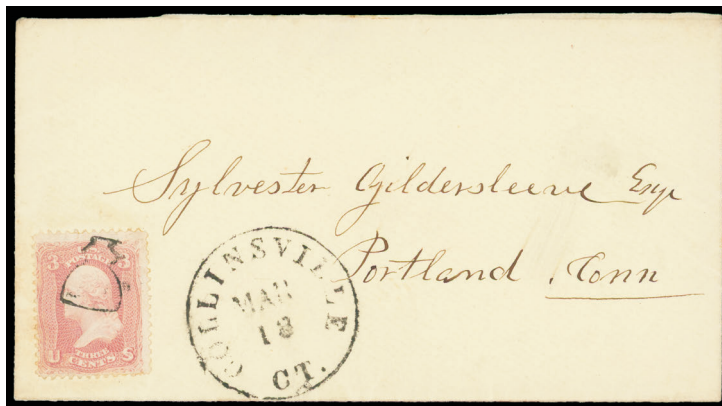 Sylvester Gildersleeve Esqr
Portland, Conn
COLLINSVILLE
MAR
18
CT.
3 POSTAGE 3
U THREE S
CENTS